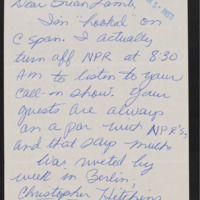 Dear Brian Lamb,
I'm "hooked" on
C span. I actually
turn off NPR at 8:30
AM to listen to your
call-in show. Your
guests are always
on a par with NPR's,
and that says much.
Was riveted by
week in Berlin,
Christopher Hitchins